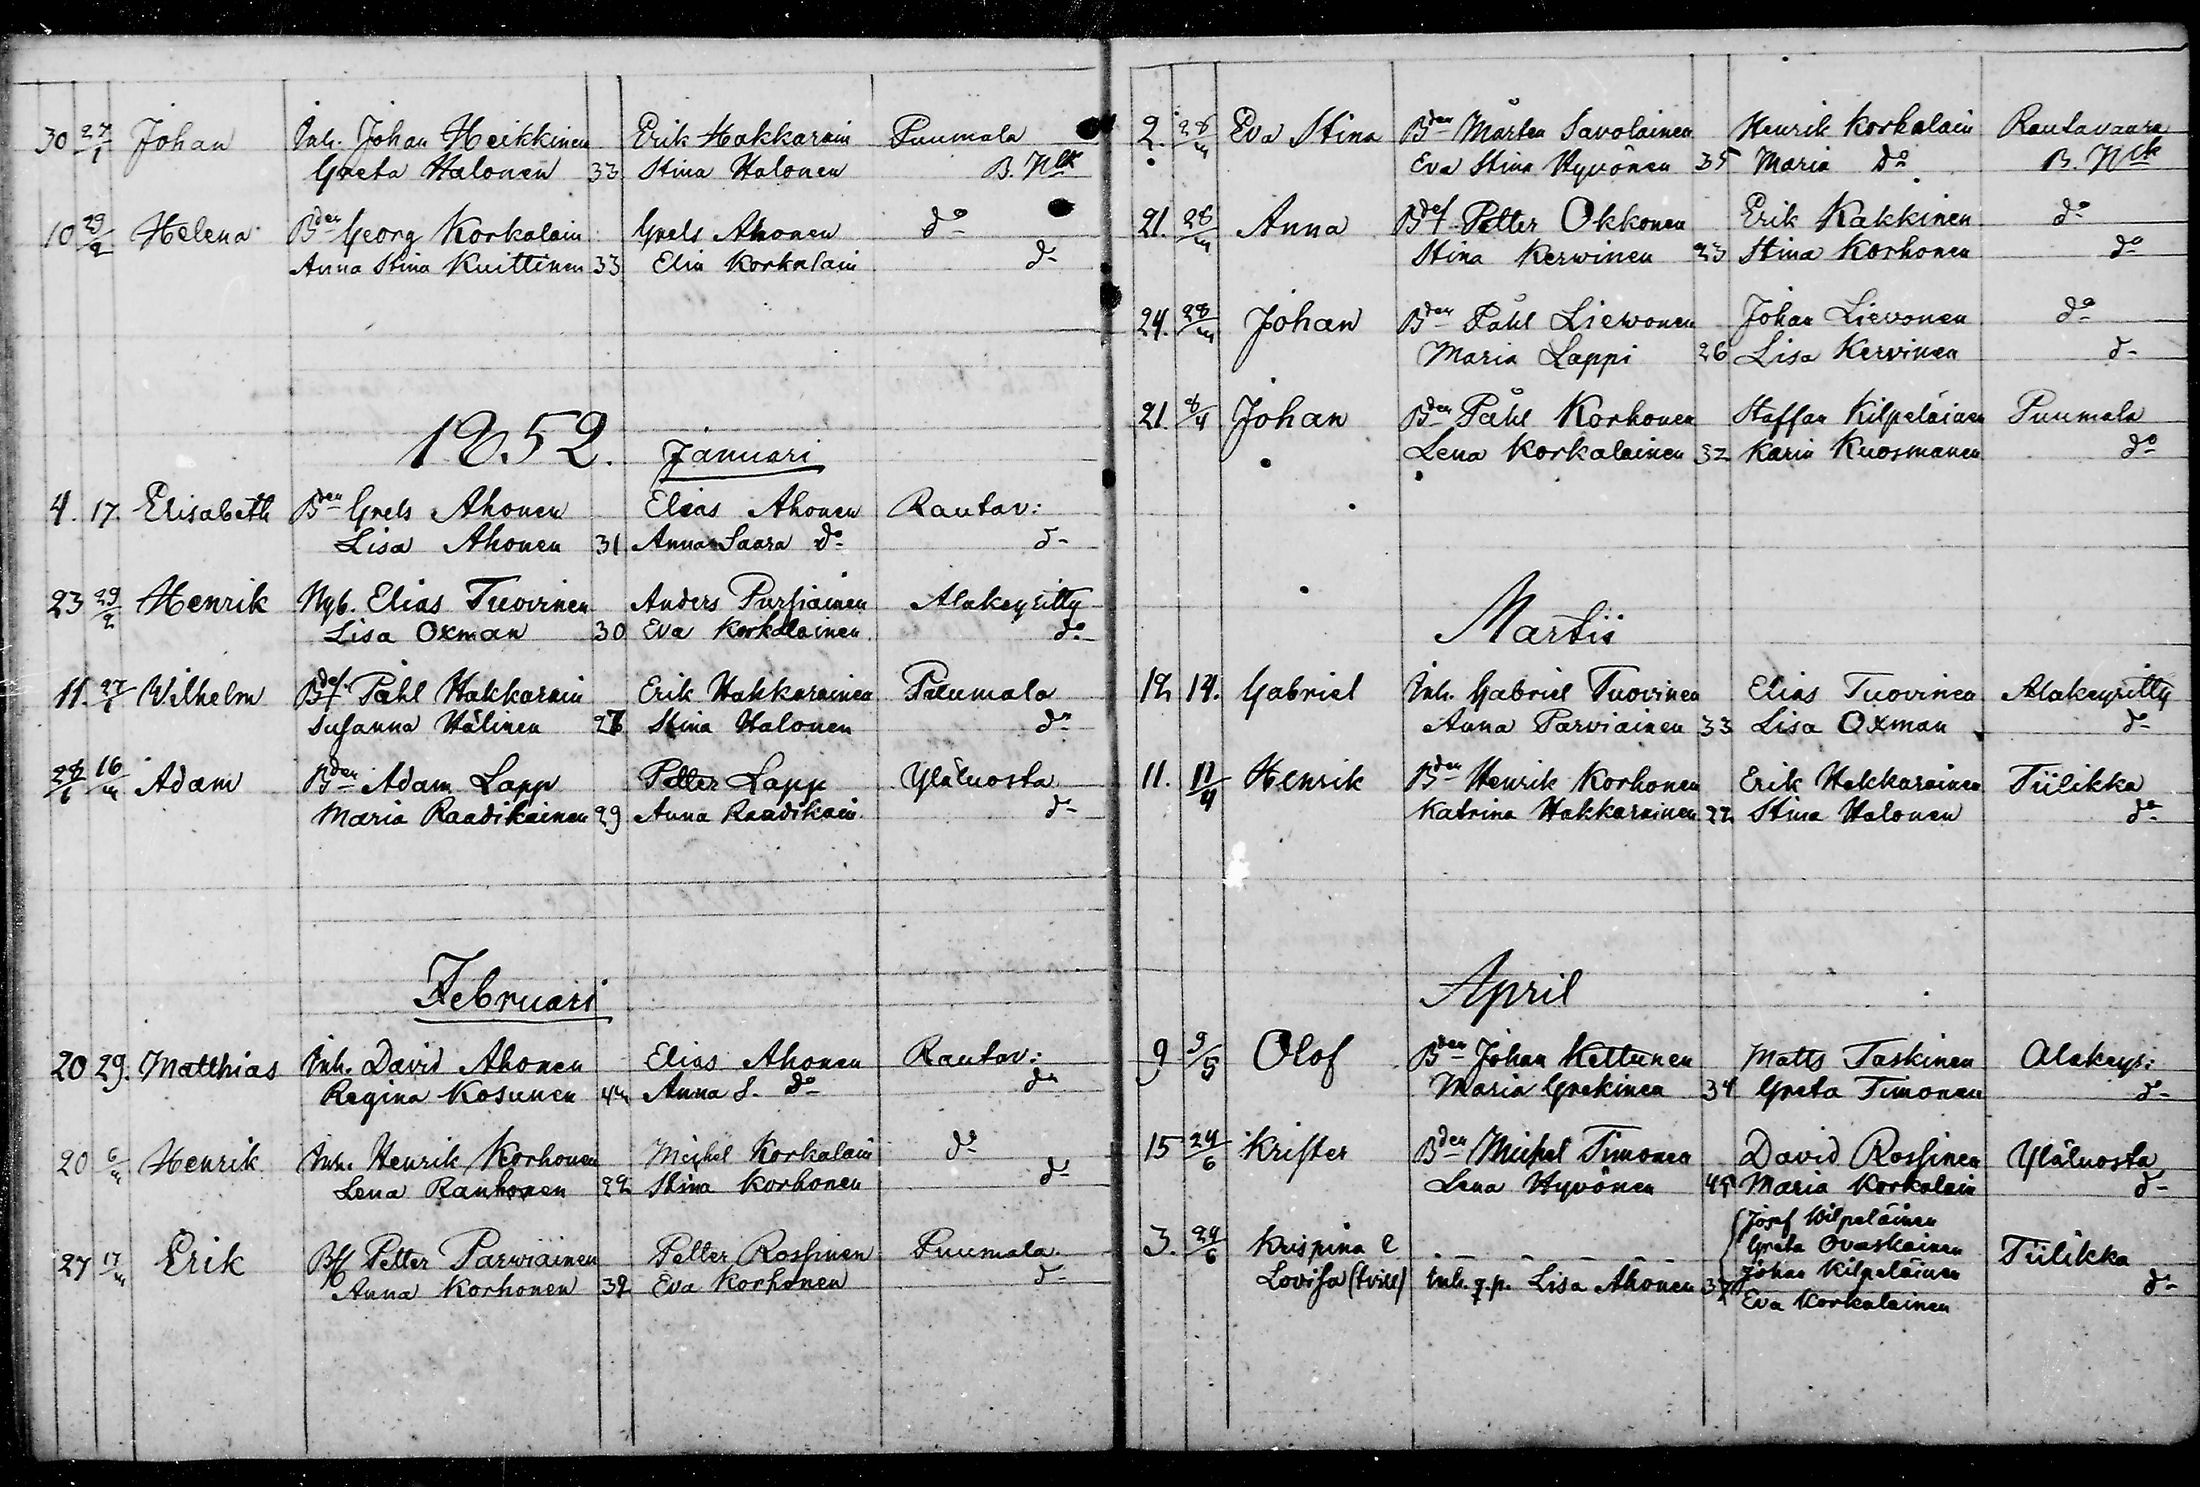 30 27/1 Johan Inh. Johan Heikkinen Erik Hakkarain Puumala
Greta Halonen 33 Stina Halonen B. Nlk
10 29/2 Helena Bden Georg Korkalain Grels Ahonen do
Anna Stina Kuittinen 33 Elin Korkalain d-
1852. Januari
4. 17. Elisabeth Bden Grels Ahonen Elias Ahonen Rautav:
Lisa Ahonen 31 Anna Saara do d-
23 29/2 Henrik Nyb. Elias Tuovinen Anders Pursiainen Alakeyritty
Lisa Oxman 30 Eva Korkalainen do
11. 27/1 Wilhelm Bdf Påhl Hakkarain Erik Hakkarainen Puumala
Susanna Hälinen Stina Halonen do
16/m Adam Bden Adam Lapp Petter Lapp Yläluosta
Maria Raadikainen 29 Anna Raadikain d-
Februari
20 29. Matthias Inh. David Ahonen Elias Ahonen Rautav:
Regina Kosunen Anna S. do do
20 6/m Henrik Inh. Henrik Korhonen Michel Korkalain do
Lena Rauhonen 22 Stina Korhonen do
27 17/m Erik Petter Parwiainen Petter Rossinen Puumala
Anna Korhonen 32 Eva Korhonen d-
2. 28/m Eva Stina Bden Mårten Savolainen Henrik Korkalain Rautavaara
Eva Stina Hyvönen 35 Maria do B. Nlk
21. 28/m Anna Bdf Petter Okkonen Erik Kakkinen do
Stina Kerwinen 23 Stina Korhonen do
24. 28/m Johan Bden Påhl Liewonen Johan Lievonen do
Maria Lappi 26 Lisa Kervinen d-
21. 8/4 Johan Bden Påhl Korhonen Staffan Kilpeläinen Puumala
Lena Korkalainen 32 Karin Kuosmanen do
Martii
12 14. Gabriel Inh. Gabriel Tuovinen Elias Tuovinen Alakeyritty
Anna Parviainen 33 Lisa Oxman d-
11. 11/4 Henrik Bden Henrik Korhonen Erik Hakkarainen Tiilikka
Katrina Hakkarainen 22 Stina Halonen do
April
9 9/5 Olof Bden Johan Kettunen Matts Taskinen Alakeyr:
Maria Grekinen 34 Greta Timonen d-
15 24/6 Krister Bden Michel Timonen David Rossinen Yläluosta
Lena Hyvönen Maria Korkalain d-
Josef Wilpeläinen
3. 24/6 Krispina Greta Ovaskainen Tiilikka
Lovisa (tvill) Inh. q.p. Lisa Ahonen Johan Kilpeläinen do
Eva Korkalainen